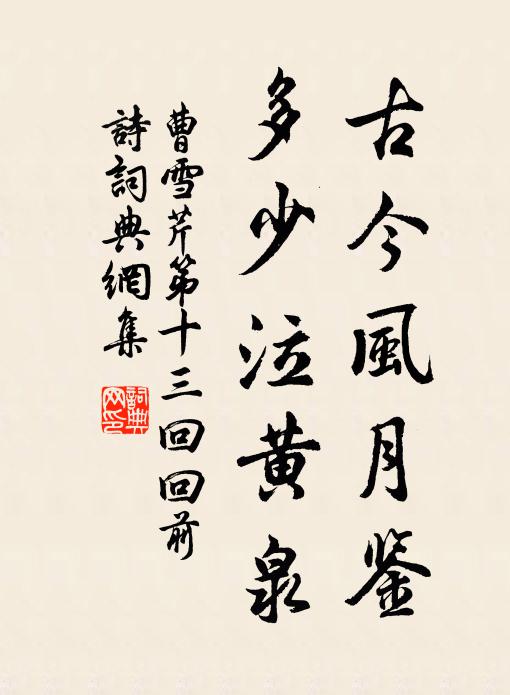 古今風月鉴
多少泣黄泉
曹雪芹第十三回回前
詩詞典網集
詞典网印